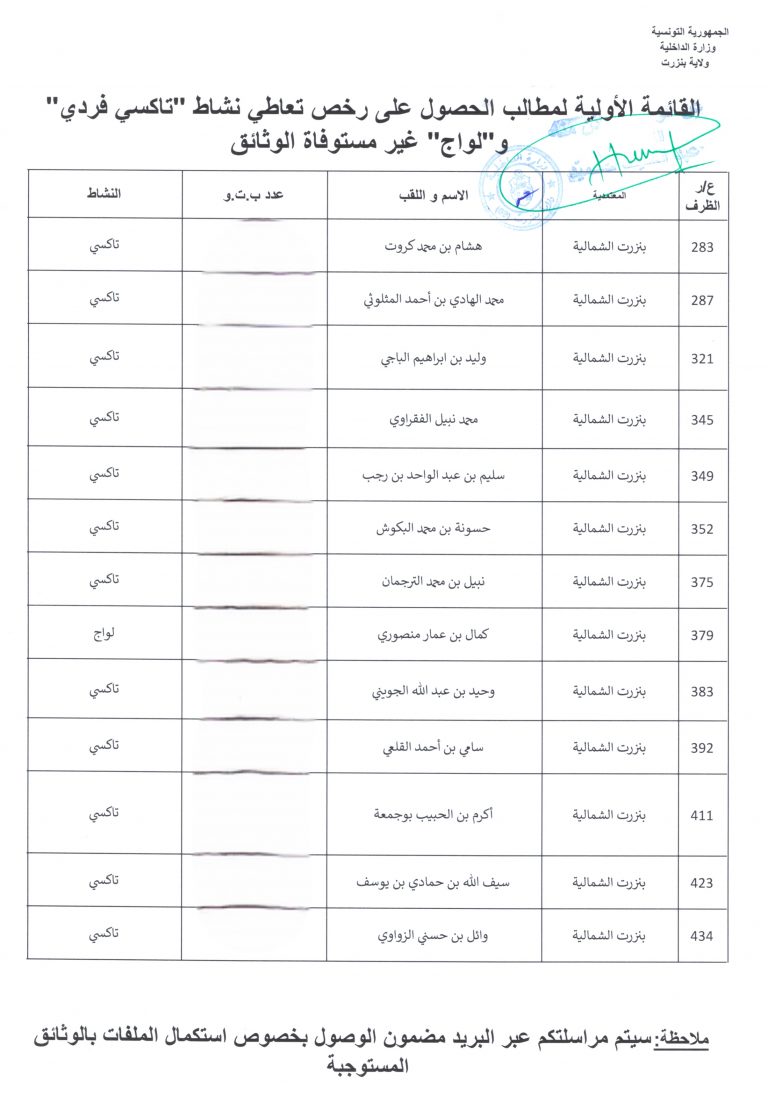 الجمهورية التونسية
وزارة الداخلية
ولاية بنزرت
القائمة الأولية لمطالب الحصول على رخص تعاطي نشاط "تاكسي فردي"
و"لواج" غير مستوفاة الوثائق
ع/ر الظرف المعتمدية الاسم و اللقب عدد ب.ت.و النشاط
283 بنزرت الشمالية هشام بن محمد كروت تاكسي
287 بنزرت الشمالية محمد الهادي بن أحمد المثلوثي تاكسي
321 بنزرت الشمالية وليد بن ابراهيم الباجي تاكسي
345 بنزرت الشمالية محمد نبيل الفقراوي تاكسي
349 بنزرت الشمالية سليم بن عبد الواحد بن رجب تاكسي
352 بنزرت الشمالية حسونة بن محمد البكوش تاكسي
375 بنزرت الشمالية نبيل بن محمد الترجمان تاكسي
379 بنزرت الشمالية كمال بن عمار منصوري لواج
383 بنزرت الشمالية وحيد بن عبد الله الجويني تاكسي
392 بنزرت الشمالية سامي بن أحمد القلعي تاكسي
411 بنزرت الشمالية أكرم بن الحبيب بوجمعة تاكسي
423 بنزرت الشمالية سيف الله بن حمادي بن يوسف تاكسي
434 بنزرت الشمالية وائل بن حسني الزواوي تاكسي
ملاحظة: سيتم مراسلتكم عبر البريد مضمون الوصول بخصوص استكمال الملفات بالوثائق
المستوجبة